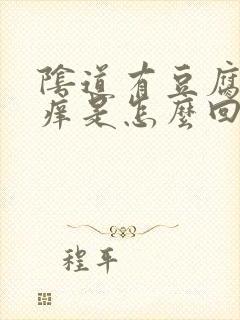 陰道有豆腐
痒是怎麼回
程平